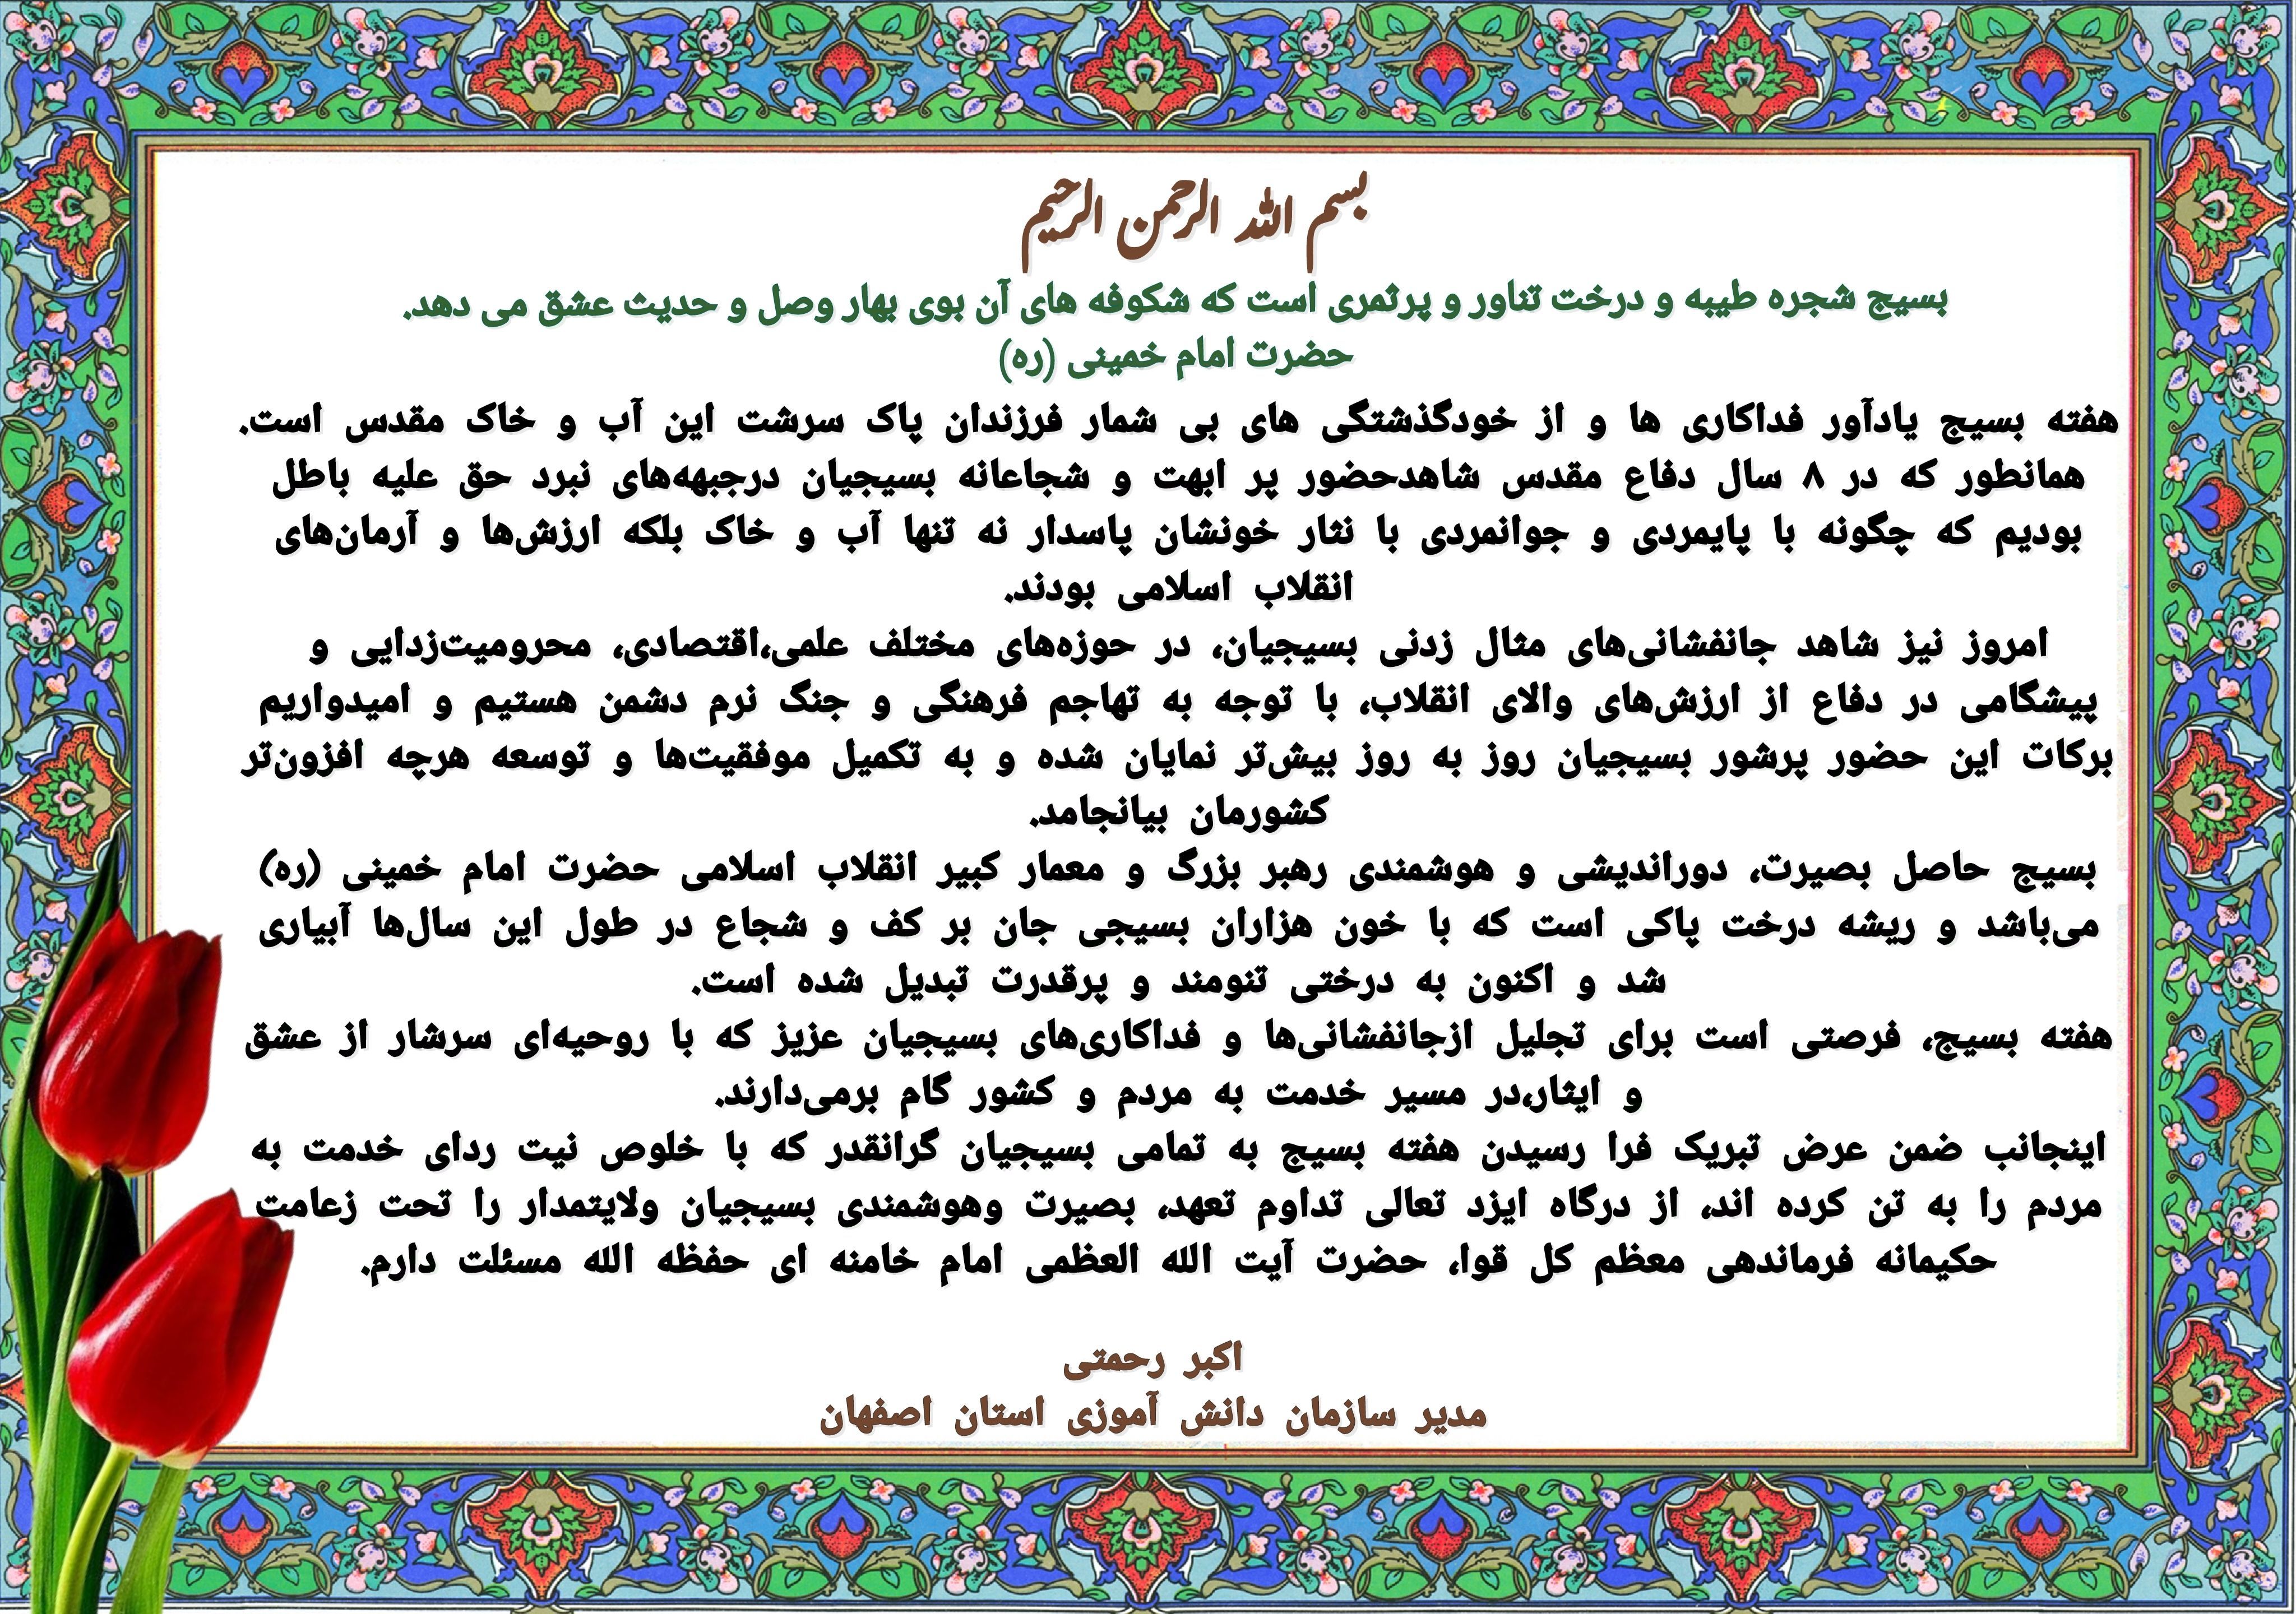 بسم الله الرحمن الرحیم
بسیج شجره طیبه و درخت تناور و پرثمری است که شکوفه های آن بوی بهار وصل و حدیث عشق می دهد.
حضرت امام خمینی (ره)
هفته بسیج یادآور فداکاری ها و از خودگذشتگی های بی شمار فرزندان پاک سرشت این آب و خاک مقدس است.
همانطور که در ۸ سال دفاع مقدس شاهدحضور پر ابهت و شجاعانه بسیجیان درجبهه‌های نبرد حق علیه باطل
بودیم که چگونه با پایمردی و جوانمردی با نثار خونشان پاسدار نه تنها آب و خاک بلکه ارزش‌ها و آرمان‌های
انقلاب اسلامی بودند.
امروز نیز شاهد جانفشانی‌های مثال زدنی بسیجیان، در حوزه‌های مختلف علمی،اقتصادی، محرومیت‌زدایی و
پیشگامی در دفاع از ارزش‌های والای انقلاب، با توجه به تهاجم فرهنگی و جنگ نرم دشمن هستیم و امیدواریم
برکات این حضور پرشور بسیجیان روز به روز بیش‌تر نمایان شده و به تکمیل موفقیت‌ها و توسعه هرچه افزون‌تر
کشورمان بیانجامد.
بسیج حاصل بصیرت، دوراندیشی و هوشمندی رهبر بزرگ و معمار کبیر انقلاب اسلامی حضرت امام خمینی (ره)
می‌باشد و ریشه درخت پاکی است که با خون هزاران بسیجی جان بر کف و شجاع در طول این سال‌ها آبیاری
شد و اکنون به درختی تنومند و پرقدرت تبدیل شده است.
هفته بسیج، فرصتی است برای تجلیل ازجانفشانی‌ها و فداکاری‌های بسیجیان عزیز که با روحیه‌ای سرشار از عشق
و ایثار،در مسیر خدمت به مردم و کشور گام برمی‌دارند.
اینجانب ضمن عرض تبریک فرا رسیدن هفته بسیج به تمامی بسیجیان گرانقدر که با خلوص نیت ردای خدمت به
مردم را به تن کرده اند، از درگاه ایزد تعالی تداوم تعهد، بصیرت وهوشمندی بسیجیان ولایتمدار را تحت زعامت
حکیمانه فرماندهی معظم کل قوا، حضرت آیت الله العظمی امام خامنه ای حفظه الله مسئلت دارم.
اکبر رحمتی
مدیر سازمان دانش آموزی استان اصفهان